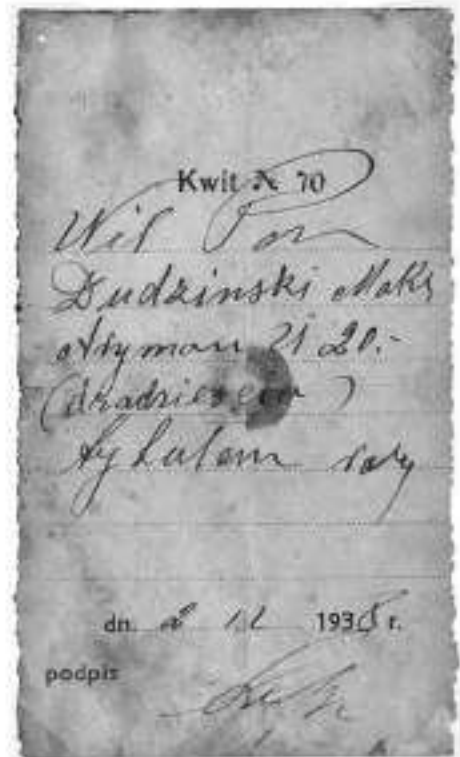 Kwit № 70
Wil Pan
Dudzinski Maks
otrzymał zł 20.-
(dwadzieścia)
tytułem raty
dn. 2 12 1935 r.
podpis